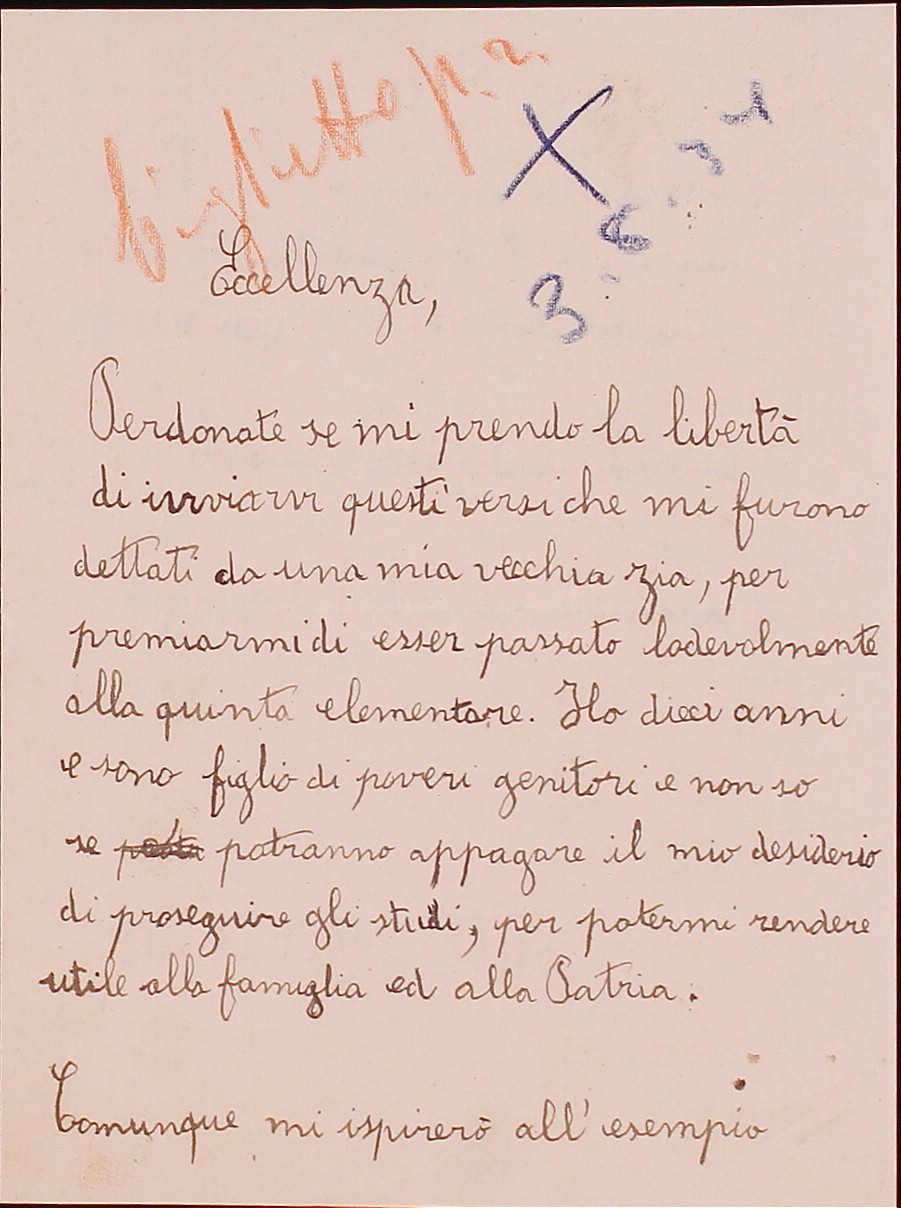 biglietto p. a.
X
3.6.34
Eccellenza,
Perdonate se mi prendo la libertà
di inviarvi questi versi che mi furono
dettati da una mia vecchia zia, per
premiarmi di esser passato lodevolmente
alla quinta elementare. Ho dieci anni
e sono figlio di poveri genitori e non so
se potranno appagare il mio desiderio
di proseguire gli studi, per potermi rendere
utile alla famiglia ed alla Patria.
Comunque mi ispirerò all'esempio